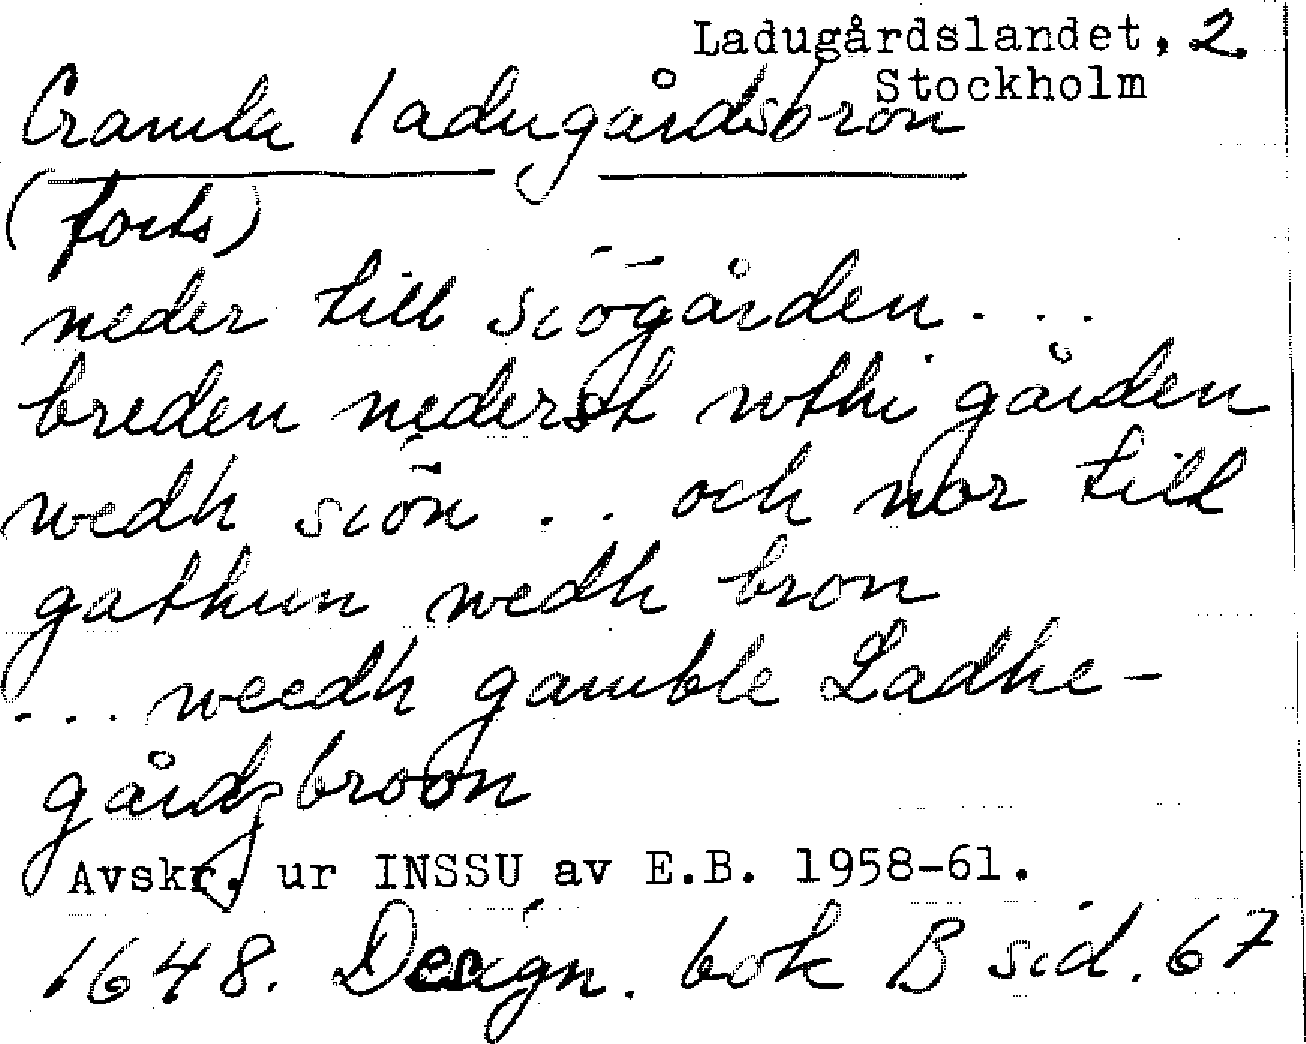 Ladugårdslandet, 2.
Stockholm
Gamla ladugårdsbron
(forts)
neder till siögården . . .
breden nederst wthi gården
wedh siön . . och nor till
gathun wedh bron
. . . weedh gamble Ladhe-
gårdzbroon
Avskr. ur INSSU av E.B. 1958-61.
1648. Design. bok B sid. 67